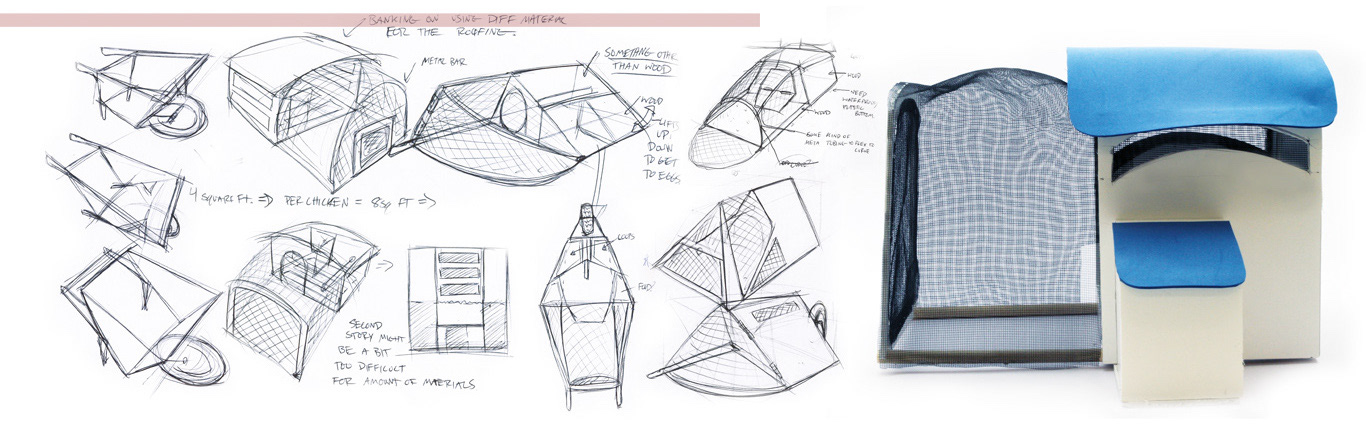 BANKING ON USING DIFF MATERIAL
FOR THE ROOFING.
METAL BAR
SOMETHING OTHER
THAN WOOD
WOOD
LIFTS
UP
DOWN
TO GET
TO EGGS
WOOD
NEED
BOTTOM
WOOD
SOME KIND OF
4 SQUARE FT. => PER CHICKEN = 8 SQ FT =>
SECOND
STORY MIGHT
BE A BIT
TOO DIFFICULT
FOR AMOUNT OF MATERIALS